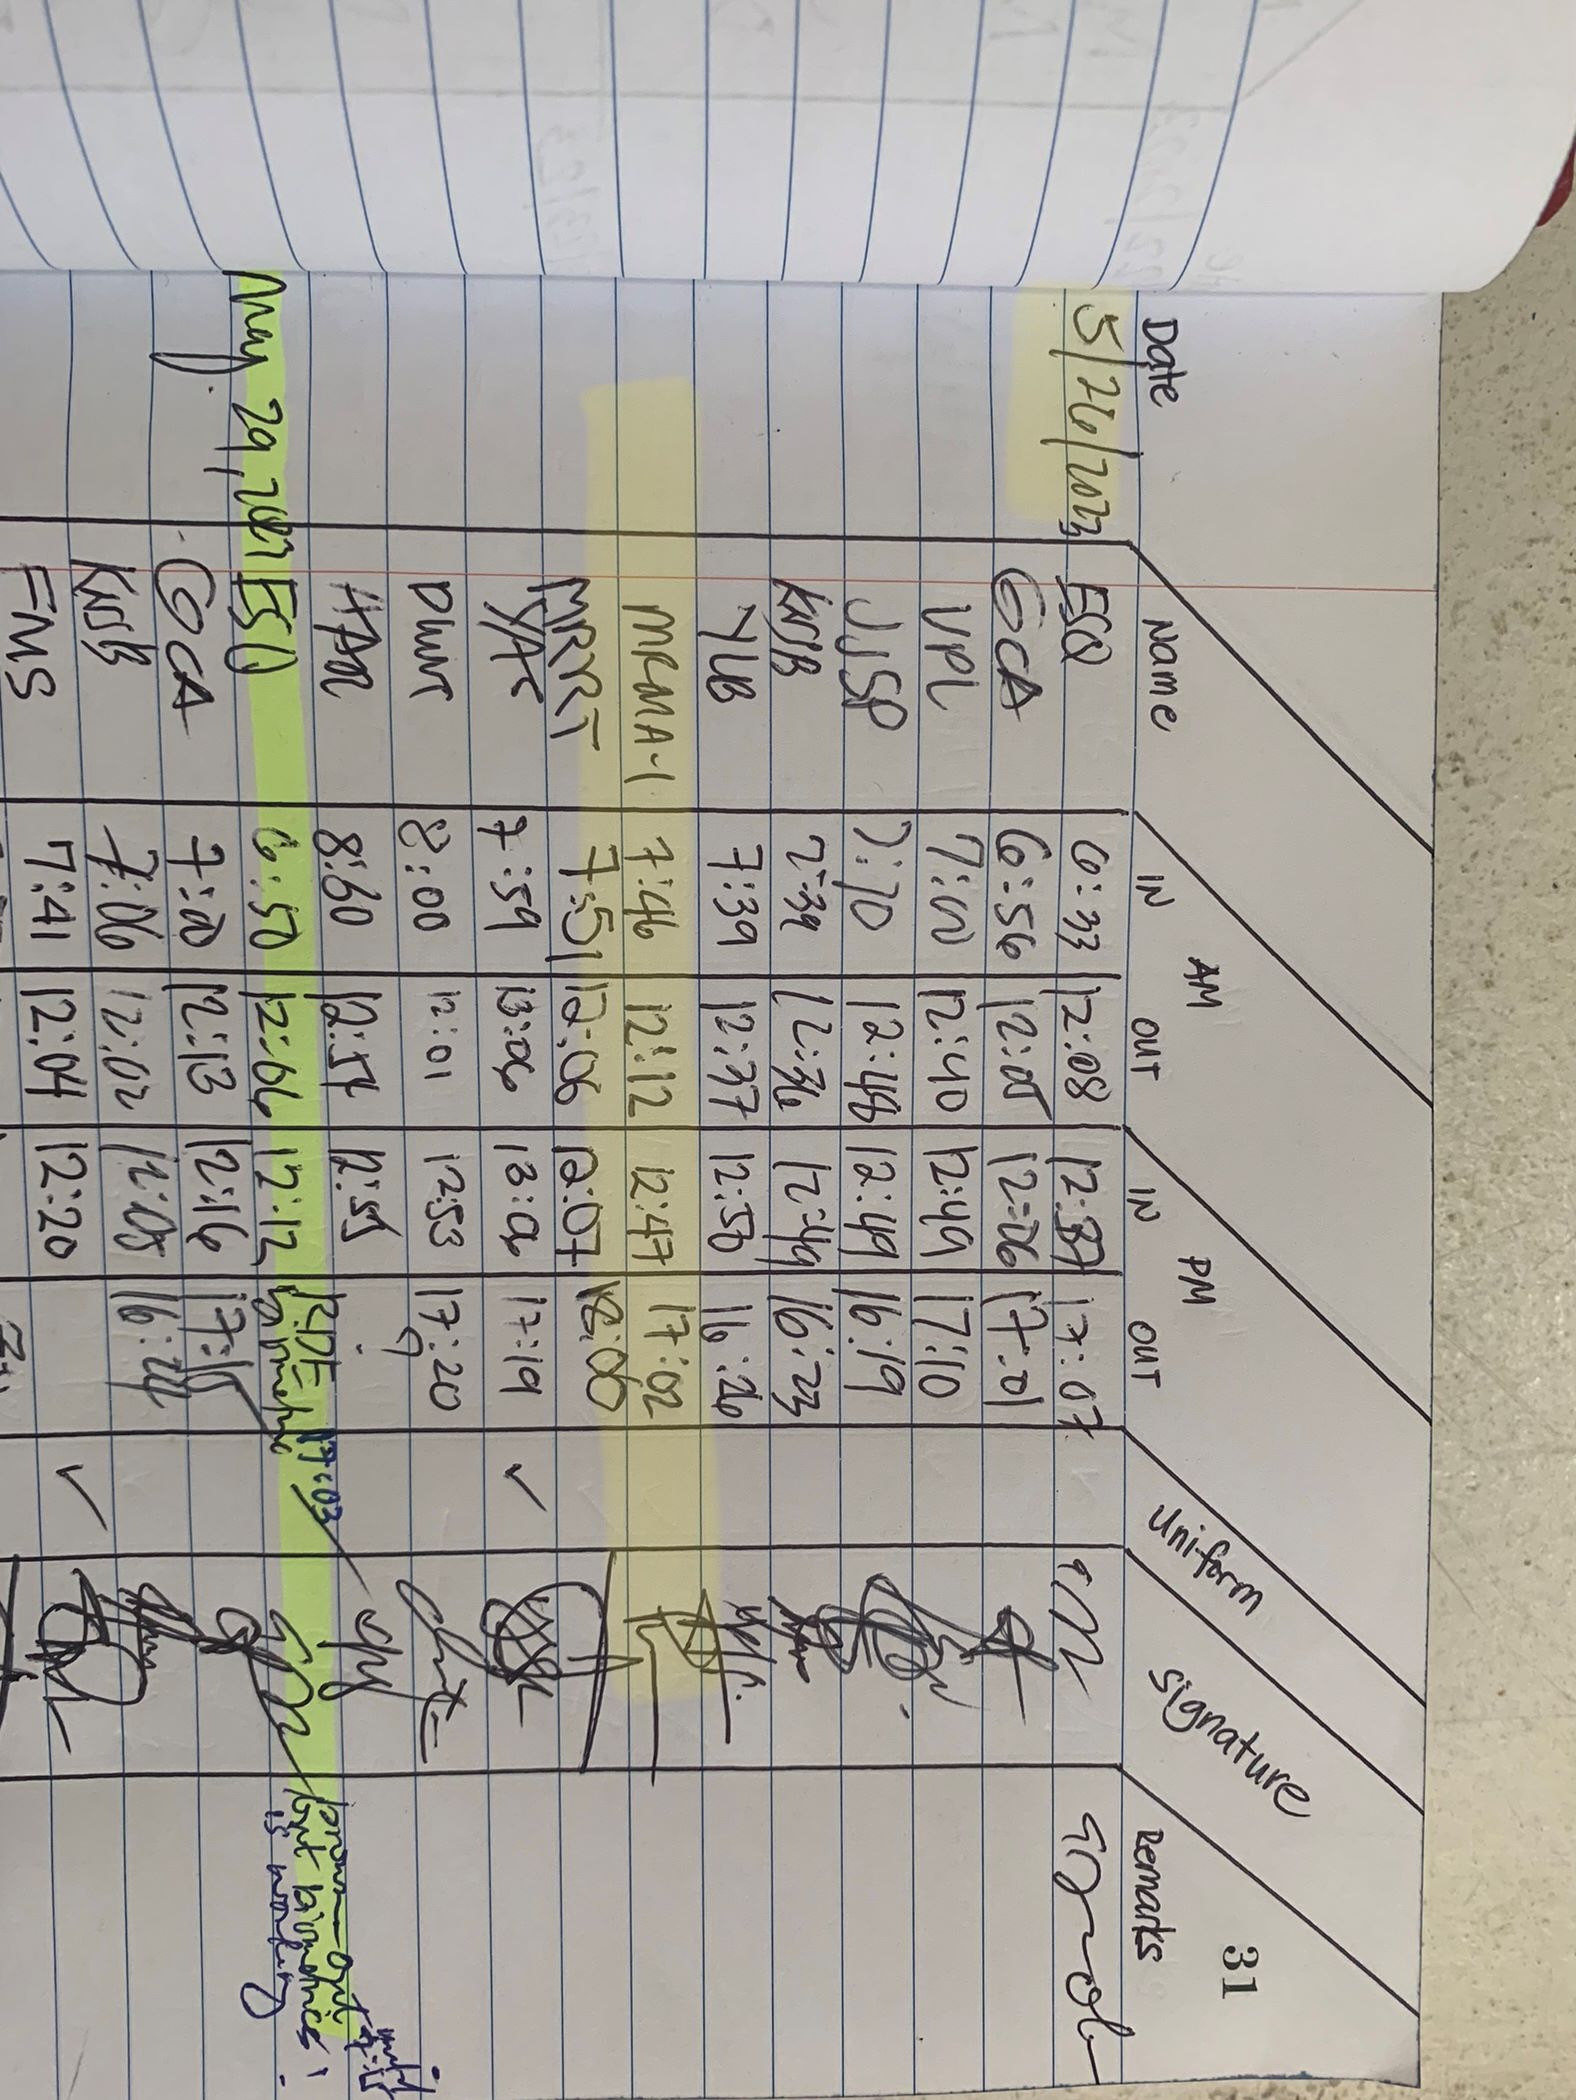 31
Date Name AM PM Uniform Signature Remarks
IN OUT IN OUT
5/26/2023 ESQ 6:33 12:08 12:37 17:07
GCA 6:56 12:05 12:06 17:01
VPL 7:00 12:40 12:49 17:10
JJSP 7:10 12:48 12:49 16:19
KWB 7:39 12:36 12:49 16:23
YLB 7:39 12:37 12:50 16:26
MRMA-1 7:46 12:12 12:47 17:02
MRRT 7:51 12:06 12:07 18:00
YAS 7:59 13:06 13:06 17:19 ✓
DWT 8:00 12:01 12:53 17:20
HAR 8:60 12:54 12:55
May 29, 2023 ESQ 6:50 12:06 12:12 17:03
but biometrics
is working
GCA 7:00 12:13 12:16 17:15
KWB 7:06 12:02 12:05 16:24
FMS 7:41 12:04 12:20 ✓